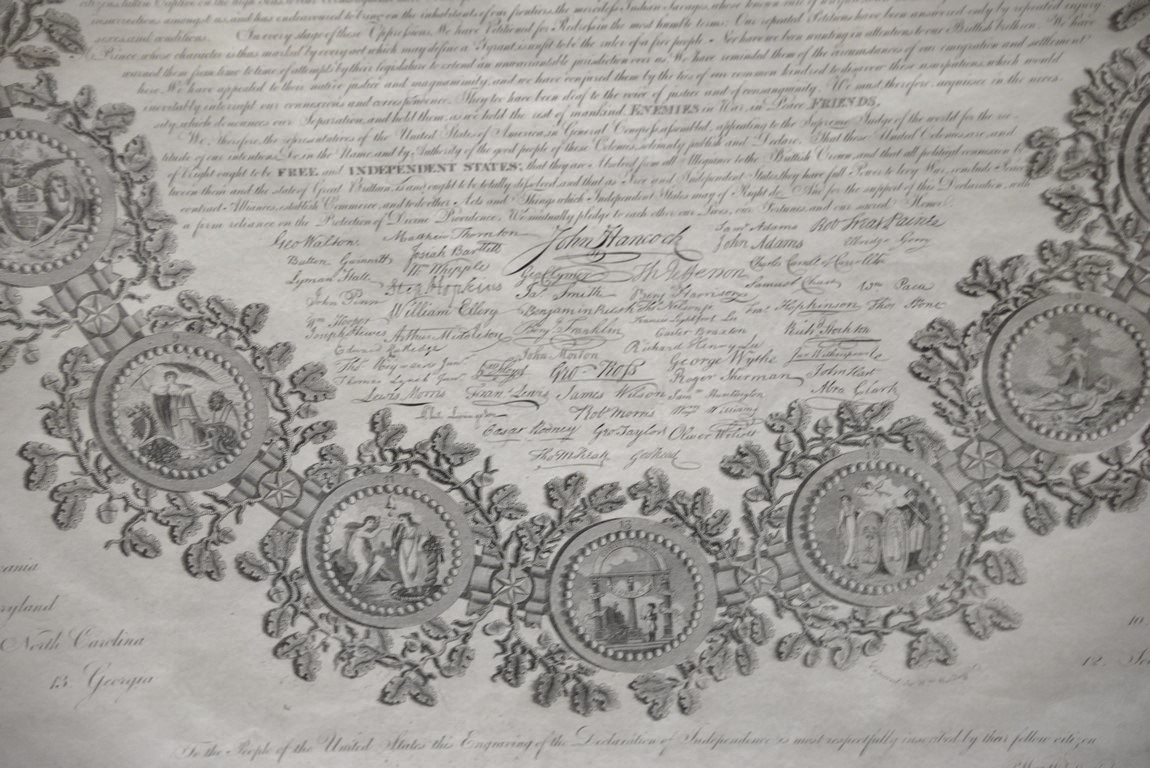 citizens taken Captive on the high Seas
insurrections amongst us, and has endeavoured to bring on the inhabitants of our frontiers, the merciless Indian Savages, whose known rule of
sexes and conditions. In every stage of these Oppressions, We have Petitioned for Redress in the most humble terms: Our repeated Petitions have been answered only by repeated injury
Prince, whose character is thus marked by every act which may define a Tyrant, is unfit to be the ruler of a free people. Nor have we been wanting in attentions to our British brethren. We have
warned them from time to time of attempts by their legislature to extend an unwarrantable jurisdiction over us. We have reminded them of the circumstances of our emigration and settlement
here. We have appealed to their native justice and magnanimity, and we have conjured them by the ties of our common kindred to disavow these usurpations, which would
inevitably interrupt our connexions and correspondence. They too have been deaf to the voice of justice and of consanguinity. We must, therefore, acquiesce in the neces-
sity, which denounces our Separation, and hold them, as we hold the rest of mankind, ENEMIES in War, in Peace FRIENDS.
We, therefore, the representatives of the United States of America, in General Congress assembled, appealing to the Supreme Judge of the world for the rec-
titude of our intentions, Do, in the Name, and by Authority of the good people of these Colonies, solemnly publish and Declare, That these United Colonies are, and
of Right ought to be FREE and INDEPENDENT STATES; that they are Absolved from all Allegiance to the British Crown, and that all political connexion be
tween them and the state of Great Britain, is and ought to be totally dissolved, and that as Free and Independent States, they have full Power to levy War, conclude Peace
contract Alliances, establish Commerce, and to do other Acts and Things which Independent States may of Right do. And for the support of this Declaration, with
a firm reliance on the Protection of Divine Providence, We mutually pledge to each other our Lives, our Fortunes, and our sacred Honor.
Geo Walton Matthew Thornton John Hancock Sam Adams Rob Treat Paine
Button Gwinnett Josiah Bartlett John Adams Elbridge Gerry
Lyman Hall Wm Whipple Geo Clymer Th Jefferson Charles Carroll of Carrollton
John Penn Step Hopkins Ja Smith Benj Harrison Samuel Chase Wm Paca
Wm Hooper William Ellery Benjamin Rush Ths Nelson Fras Hopkinson Thos Stone
Joseph Hewes Arthur Middleton Benj Franklin Francis Lightfoot Lee Carter Braxton Richd Stockton
Edward Rutledge John Morton Richard Henry Lee
Ths Heyward Junr Geo Ross George Wythe Jno Witherspoon
Thomas Lynch Junr Roger Sherman John Hart
Lewis Morris Fran Lewis James Wilson Sam Huntington Abra Clark
Phil Livingston Robt Morris Wm Williams
Caesar Rodney Geo Taylor Oliver Wolcott
Tho M Kean Geo Read
ryland
North Carolina
13 Georgia
10.
12.
To the People of the United States this Engraving of the Declaration of Independence is most respectfully inscribed by their fellow citizen